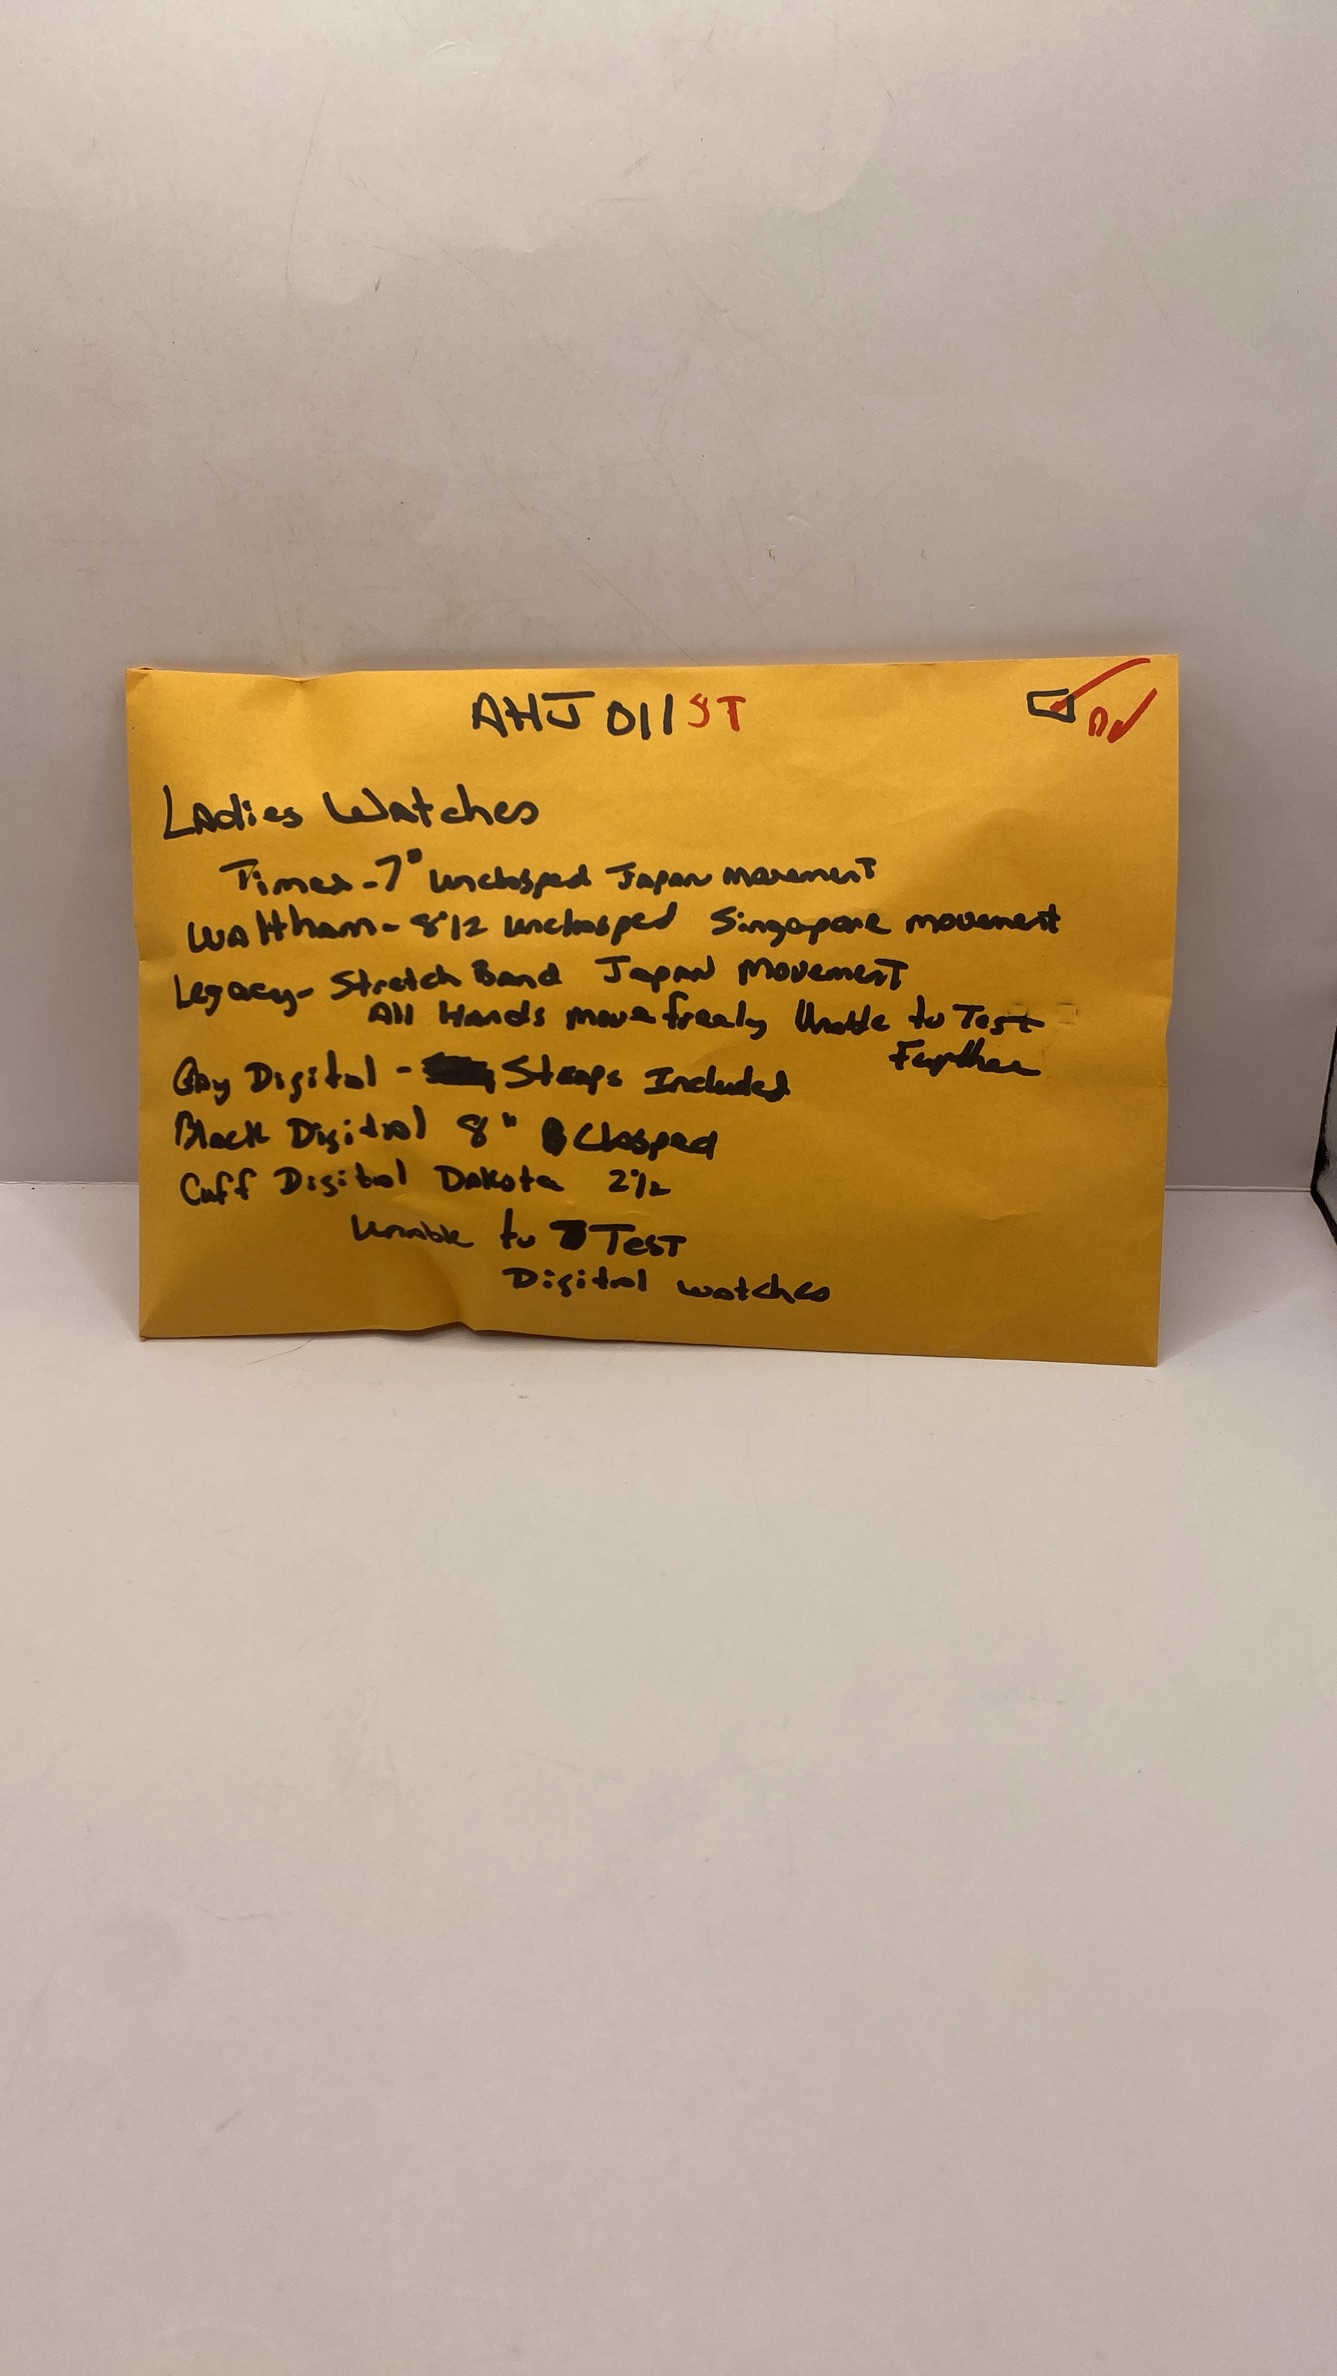 AHJ 011ST
Ladies Watches
Timex - 7" unclasped Japan movement
Waltham - 8 1/2 unclasped Singapore movement
Legacy - Stretch Band Japan Movement
All Hands move freely Unable to Test
Further
Digital - Straps Included
Black Digital 8" Clasped
Cuff Digital Dakota 2 1/2
Unable to Test
Digital watches